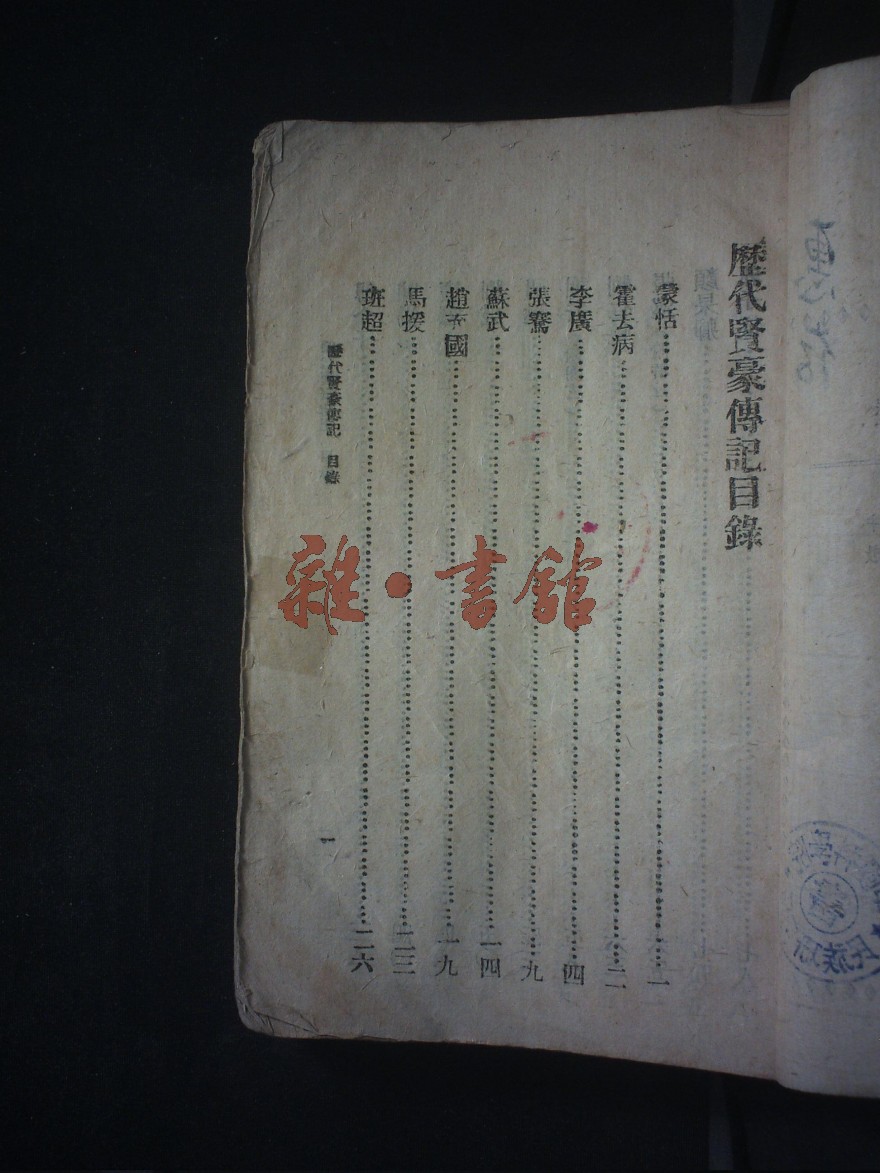 歷代賢豪傳記目錄
蒙恬……一
霍去病……二
李廣……四
張騫……九
蘇武……一四
趙充國……一九
馬援……二三
班超……二六
歷代賢豪傳記 目錄
一
雜·書館